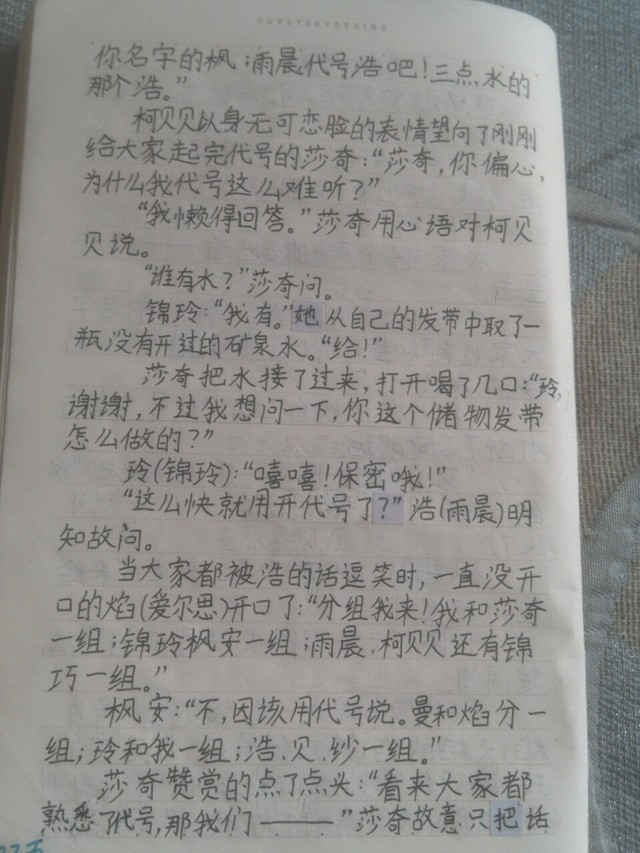 OURSTORYBEGINS
你名字的枫；雨晨代号浩吧！三点水的
那个浩。”
柯贝贝以身无可恋脸的表情望向了刚刚
给大家起完代号的莎奇：“莎奇，你偏心，
为什么我代号这么难听？”
“我懒得回答。”莎奇用心语对柯贝
贝说。
“谁有水？”莎奇问。
锦玲：“我有。”她从自己的发带中取了一
瓶没有开过的矿泉水。“给！”
莎奇把水接了过来，打开喝了几口：“玲，
谢谢，不过我想问一下，你这个储物发带
怎么做的？”
玲(锦玲)：“嘻嘻！保密哦！”
“这么快就用开代号了？”浩(雨晨)明
知故问。
当大家都被浩的话逗笑时，一直没开
口的焰(爱尔思)开口了：“分组我来！我和莎奇
一组；锦玲枫安一组；雨晨、柯贝贝还有锦
巧一组。”
枫安：“不，因该用代号说。曼和焰分一
组；玲和我一组；浩、贝、纱一组。”
莎奇赞赏的点了点头：“看来大家都
熟悉了代号，那我们———”莎奇故意只把话